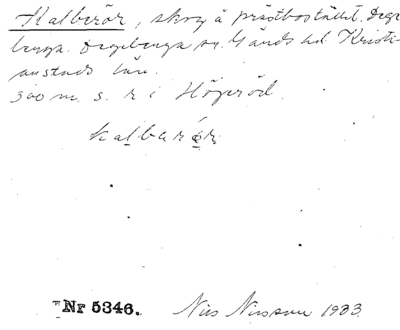 Kalberör, skog å prästbostället. Dege
berga. Degeberga sn. Gärds hd. Kristi-
anstads län.
300 m. s. k i Högeröd.
kalbarör
Nr 5346. Nils Nilsson 1933.